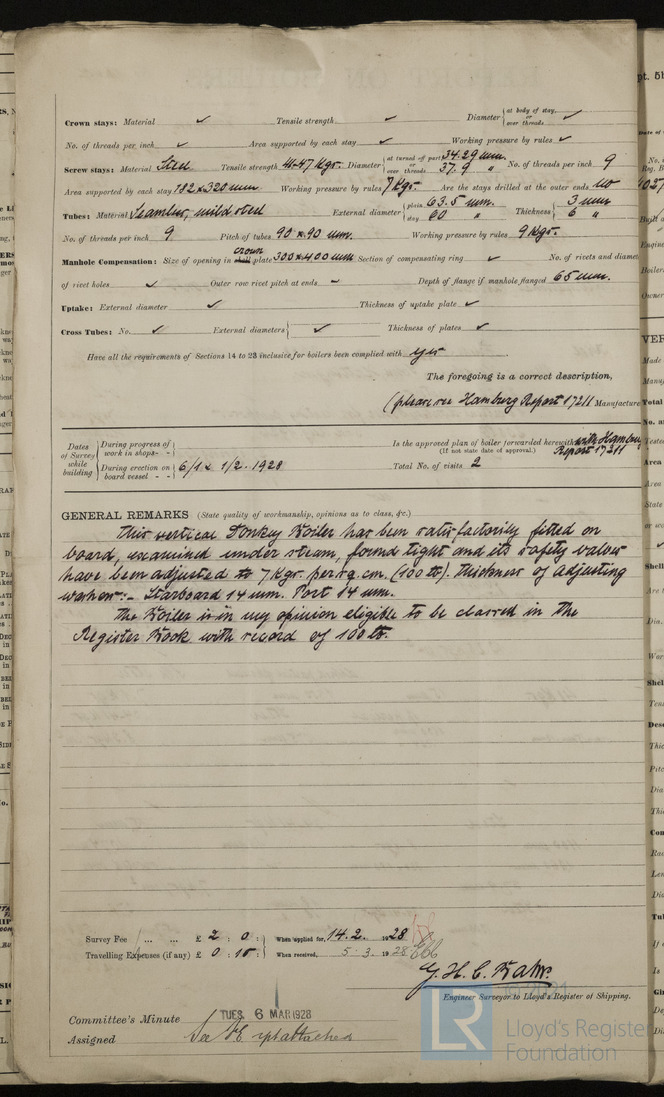 Crown stays: Material ✓ Tensile strength ✓ Diameter { at body of stay, or over threads ✓
No. of threads per inch ✓ Area supported by each stay ✓ Working pressure by rules ✓
Screw stays: Material Steel Tensile strength 41-47 Kgr. Diameter { at turned off part 34.29 mm. or over threads 37.9 " No. of threads per inch 9
Area supported by each stay 182 x 328 mm Working pressure by rules 7 Kgr. Are the stays drilled at the outer ends no
Tubes: Material Seamless, mild steel External diameter { plain 63.5 mm. stay 60 " Thickness { 3 mm 6 "
No. of threads per inch 9 Pitch of tubes 90 x 90 mm. Working pressure by rules 9 Kgr.
Manhole Compensation: Size of opening in shell crown plate 300 x 400 mm Section of compensating ring ✓ No. of rivets and diame
of rivet holes ✓ Outer row rivet pitch at ends - Depth of flange if manhole flanged 65 mm.
Uptake: External diameter ✓ Thickness of uptake plate ✓
Cross Tubes: No. ✓ External diameters { ✓ Thickness of plates ✓
Have all the requirements of Sections 14 to 23 inclusive for boilers been complied with yes
The foregoing is a correct description,
(please see Hamburg Report 17211 Manufacture
Dates of Survey while building { During progress of work in shops - - { During erection on board vessel - - } 6/1 & 1/2. 1928
Is the approved plan of boiler forwarded herewith with Hamburg Report 17211
(If not state date of approval.)
Total No. of visits 2
GENERAL REMARKS (State quality of workmanship, opinions as to class, &c.)
This vertical Donkey Boiler has been satisfactorily fitted on
board, examined under steam, found tight and its safety valves
have been adjusted to 7 Kgr. per sq. cm. (100 lb). Thickness of adjusting
washers:- Starboard 14 mm. Port 14 mm.
The Boiler is in my opinion eligible to be classed in the
Register Book with record of 100 lb.
Survey Fee ... ... £ 2 : 0 : When applied for, 14.2. 1928
Travelling Expenses (if any) £ 0 : 10 : When received, 5.3.1928
Engineer Surveyor to Lloyd's Register of Shipping.
Committee's Minute TUES. 6 MAR 1928
Assigned See attached
LR Lloyd's Register
Foundation